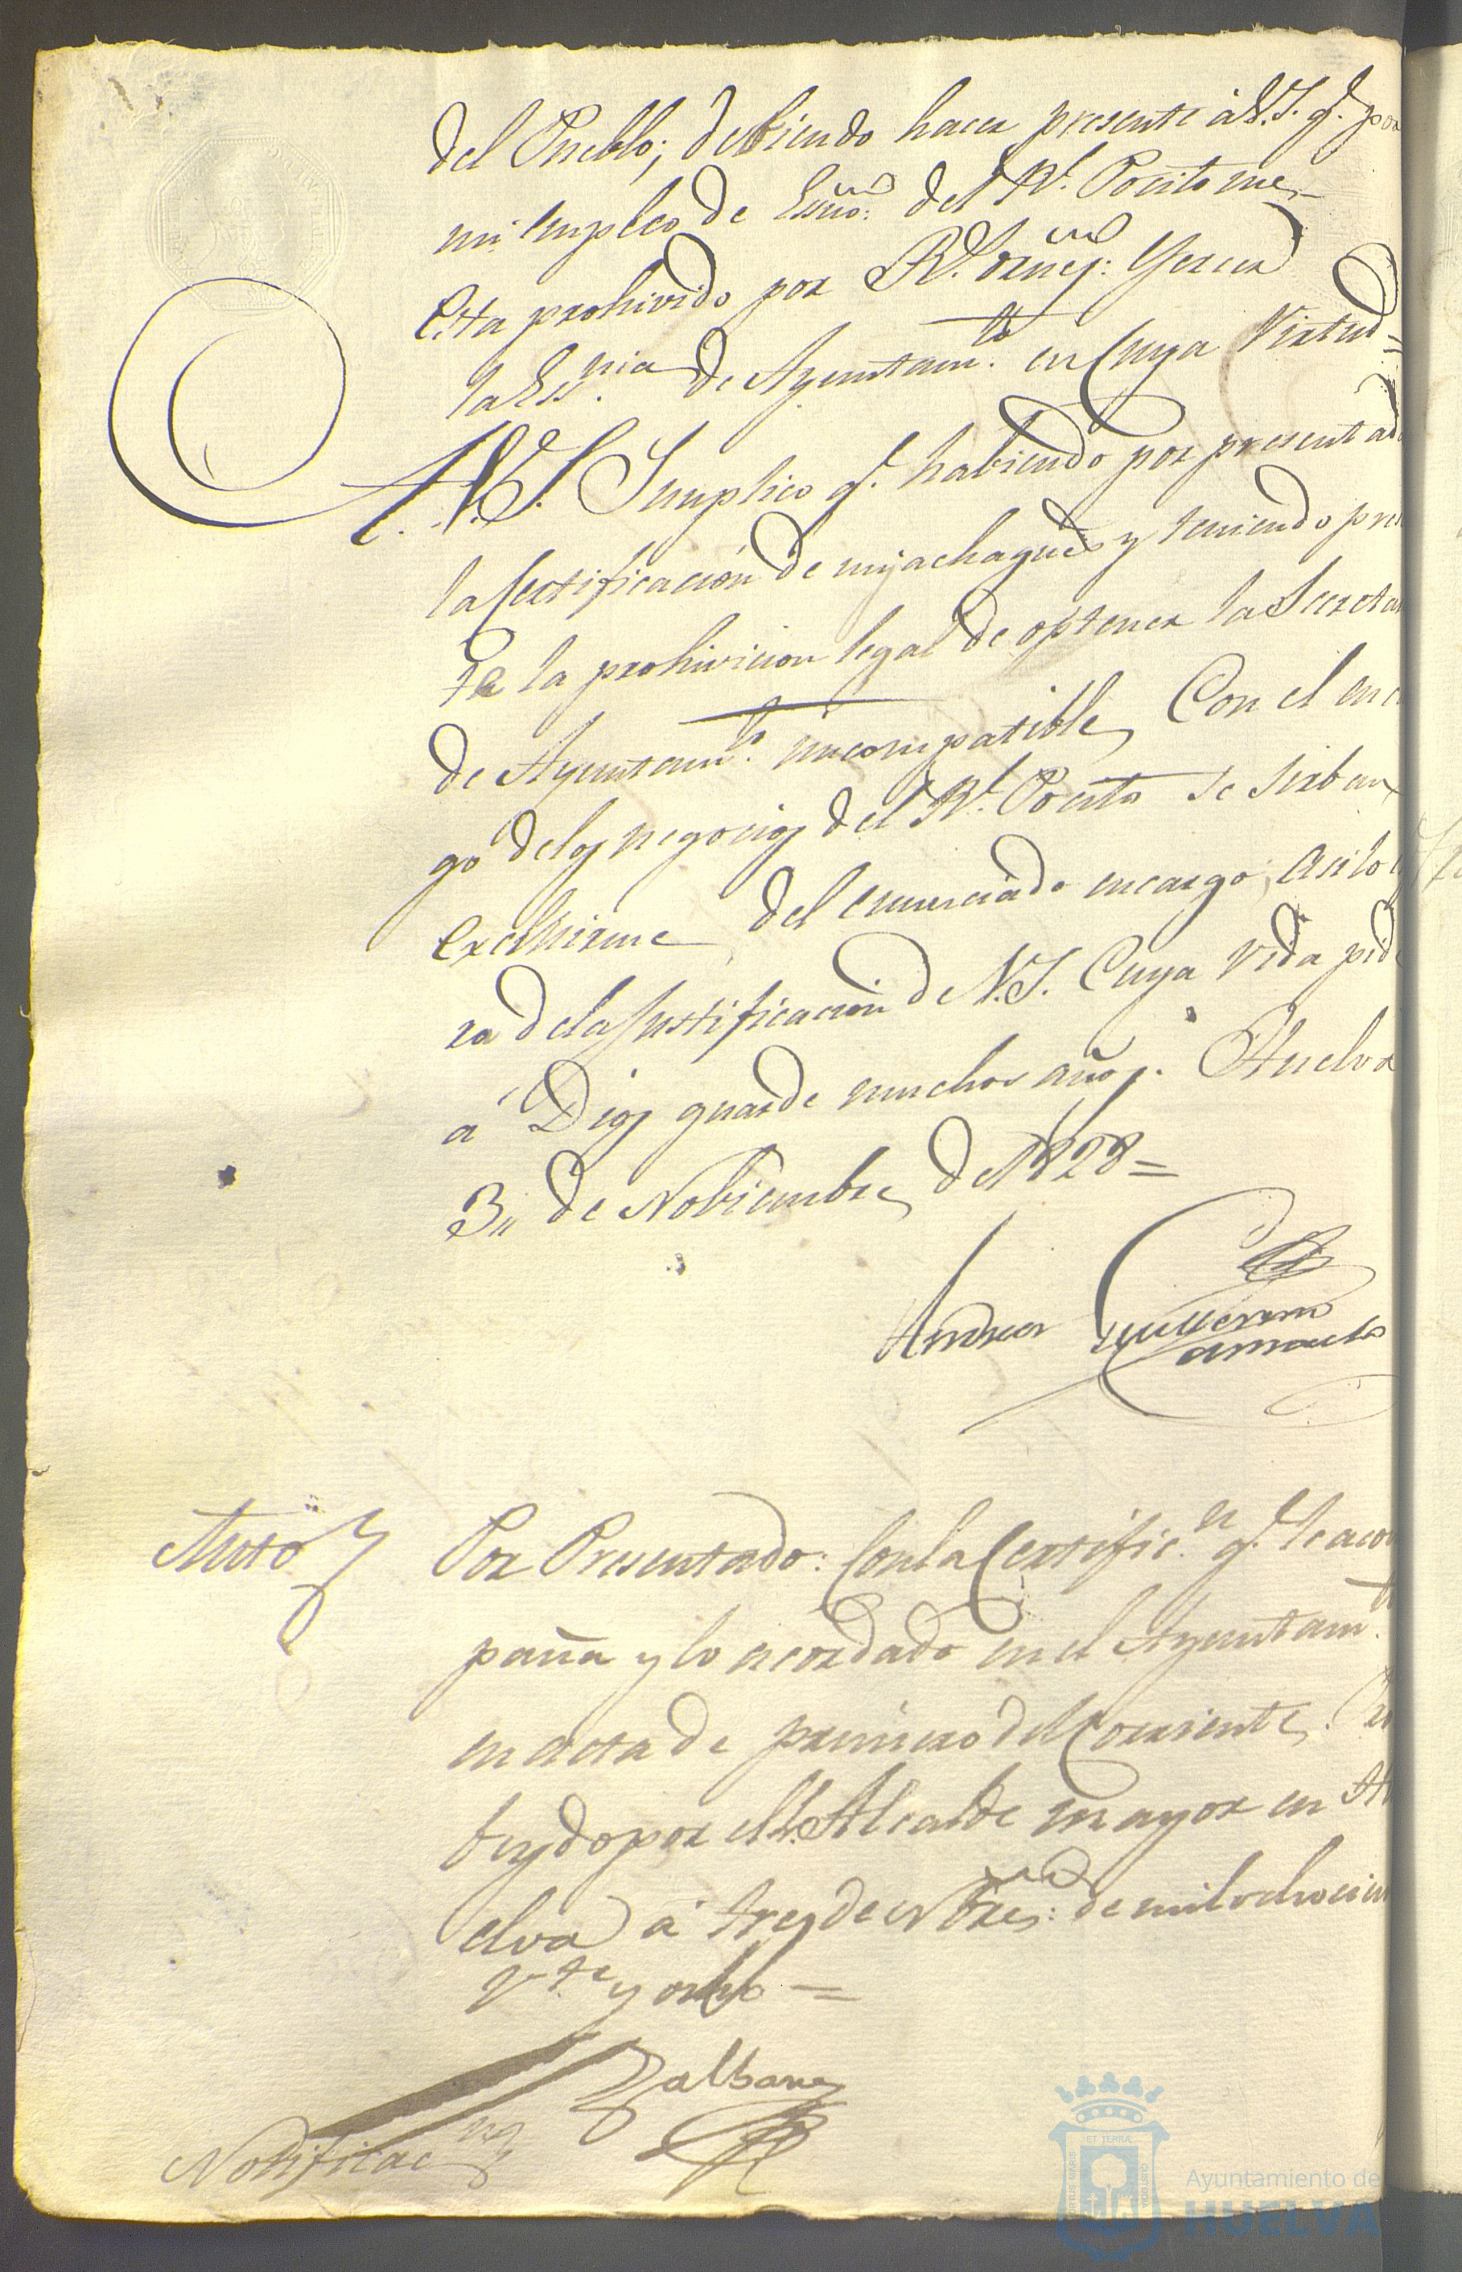 del Pueblo; debiendo hacer presente á V.S. q.e por
mi empleo de Essno: del R.l Pocito me
esta prohivido por R.l orñes: Yercer
la Ess.nia de Ayuntam.to en Cuya Virtud=
A V.S. Suplico q.e habiendo por presentado
la Certificacion de mis achaques y teniendo pres
te la prohivicion legal de optener la Secreta
de Ayuntam.to incompatible Con el enca
go de los negocios del R.l Pocito se sirban
exclhirme del enunciado encargo; asi lo
ra de la Justificacion de V.S. Cuya vida pide
á Dios guarde muchos años. Huelva
3,, de Nobiembre de 1828=
Andres Guillermo
Auto
Por Presentado: Con la Certific.n q.e le acom
paña y lo acordado en el Ayuntam.to
en acta de primero del Corriente. Pro
beydo por el S. Alcalde mayor en Hu
elva á tres de Nobres: de mil ochocien
v.te y ocho =
Galbane
Notificac.on
ET TERRÆ
PORTUS MARIS
CUSTODIA
Ayuntamiento de
HUELVA